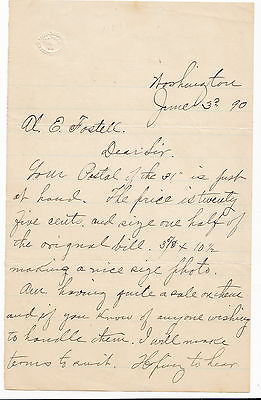 Washington
June 3rd 90
Al. E. Fostell.
Dear Sir.
Your Postal of the 31st is just
at hand. The price is twenty
five cents, and size one half of
the original bill. 3 7/8 x 10 1/2
making a nice size photo.
Am having quite a sale on them
and if you know of anyone wishing
to handle them. I will make
terms to suit. Hoping to hear